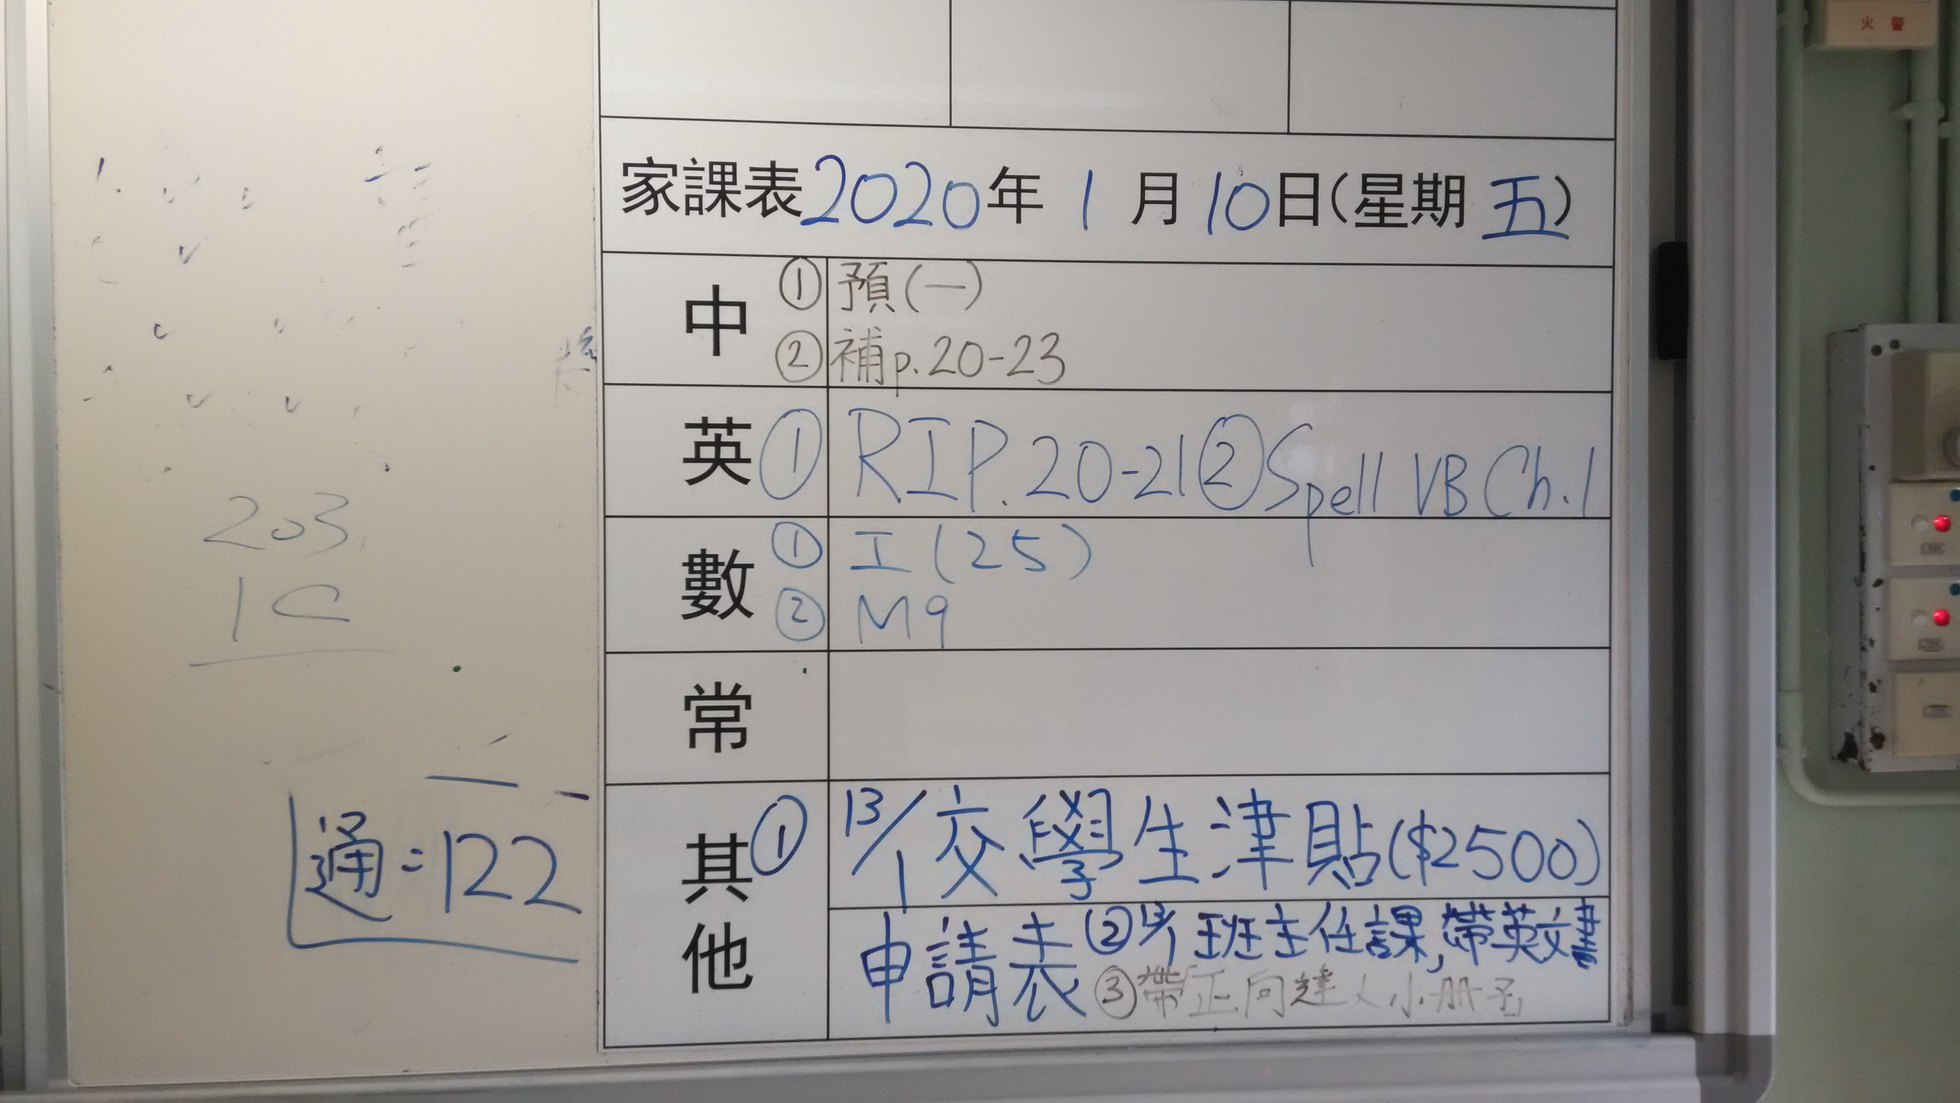 火 警
家課表 2020年 1 月 10日(星期 五)
中 ① 預(一)
② 補p.20-23
英 ① RIP.20-21 ② Spell VB Ch.1
數 ① 工(25)
② M9
常
其他 ① 13/1 交學生津貼($2500)
申請表 ② 13/1 班主任課,帶英文書
③ 帶正向達人小冊子
203
1C
通:122